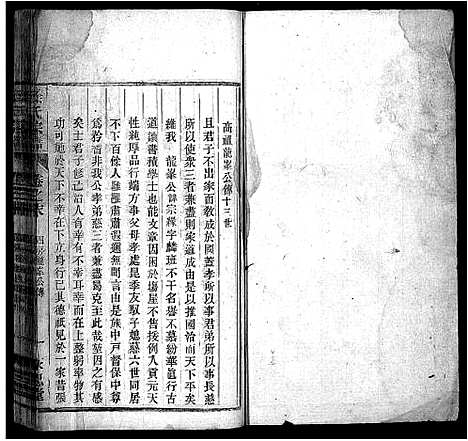 高祖龍峯公傳十三世
且君子不出家而敎成於國蓋孝所以事君弟所以事長慈
所以使衆三者兼盡則家道成由是以推國治而天下平矣
維我 龍峯公諱宗 字麟班不干名譽不慕紛華直行古
道讀書積學士也能文章因困於塲屋不售按例入貢元天
性純厚品行端方事父母孝處昆季友馭子姪慈六世同居
不下百餘人雝雝肅肅遐邇無間言由是族中戸督保中尊
爲矜耆非我公孝弟慈三者兼盡曷克至此哉葢因之有感
矣士君子修己治人有幸有不幸耳幸而在上整躬率物其
功可施於天下不幸在下立身行己其德祇見於一家昔張